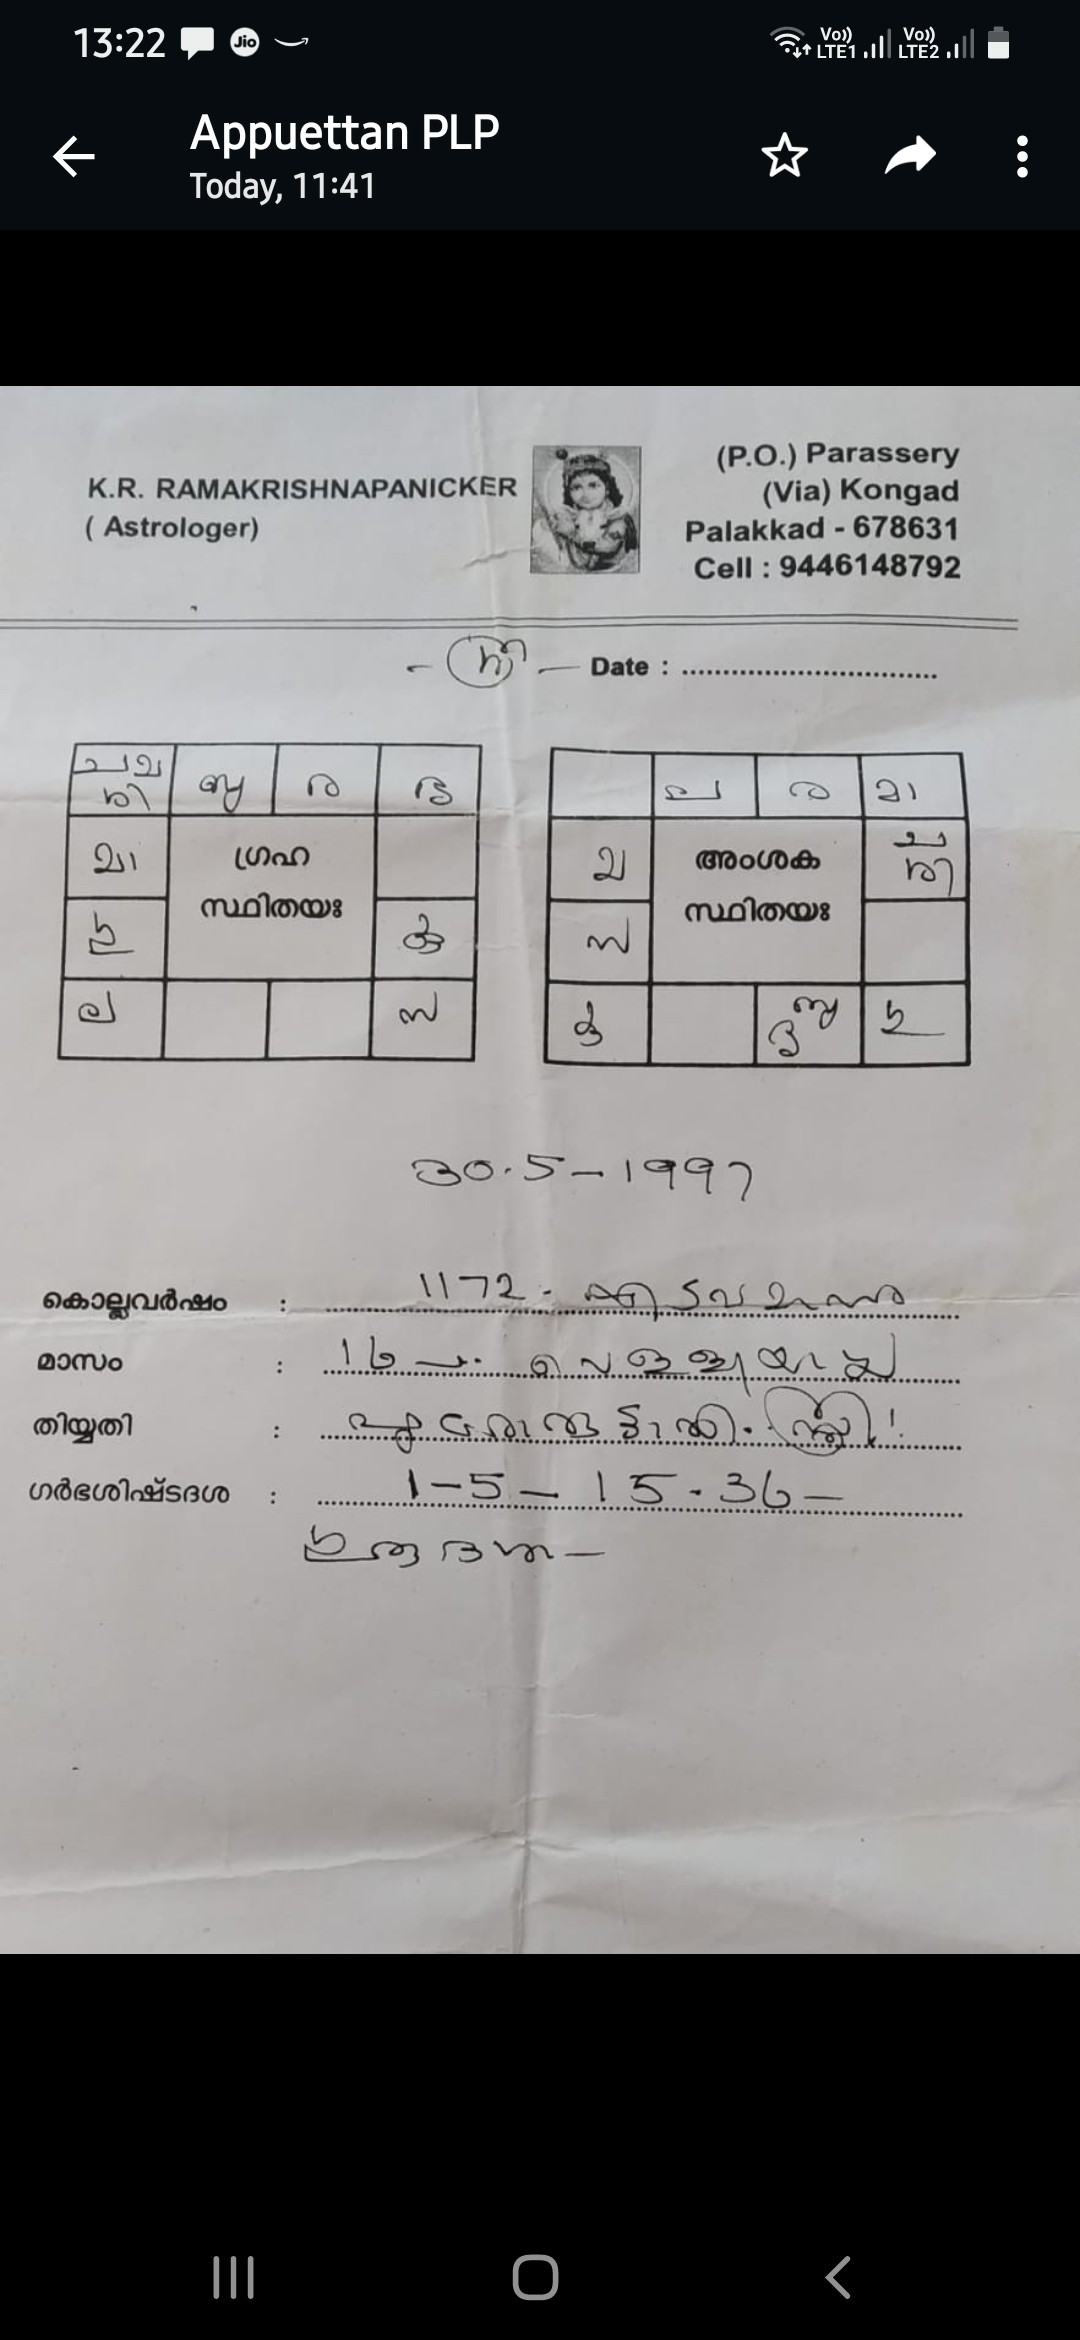 13:22 Jio Vo)) LTE1 Vo)) LTE2
Appuettan PLP
Today, 11:41
K.R. RAMAKRISHNAPANICKER
( Astrologer)
(P.O.) Parassery
(Via) Kongad
Palakkad - 678631
Cell : 9446148792
Date :
ബു ര
മാ
ഗ്രഹ
സ്ഥിതയഃ
ഗു
ല
ര മാ
അംശക
സ്ഥിതയഃ
ഗു
30.5-1997
കൊല്ലവർഷം : 1172. എടവമാസം
മാസം : 16 വെള്ളിയാഴ്ച
തിയ്യതി : പൂരൂരുട്ടാതി. സ്ത്രീ!
ഗർഭശിഷ്ടദശ : 1-5-15.36-
ഗുരുദശ-